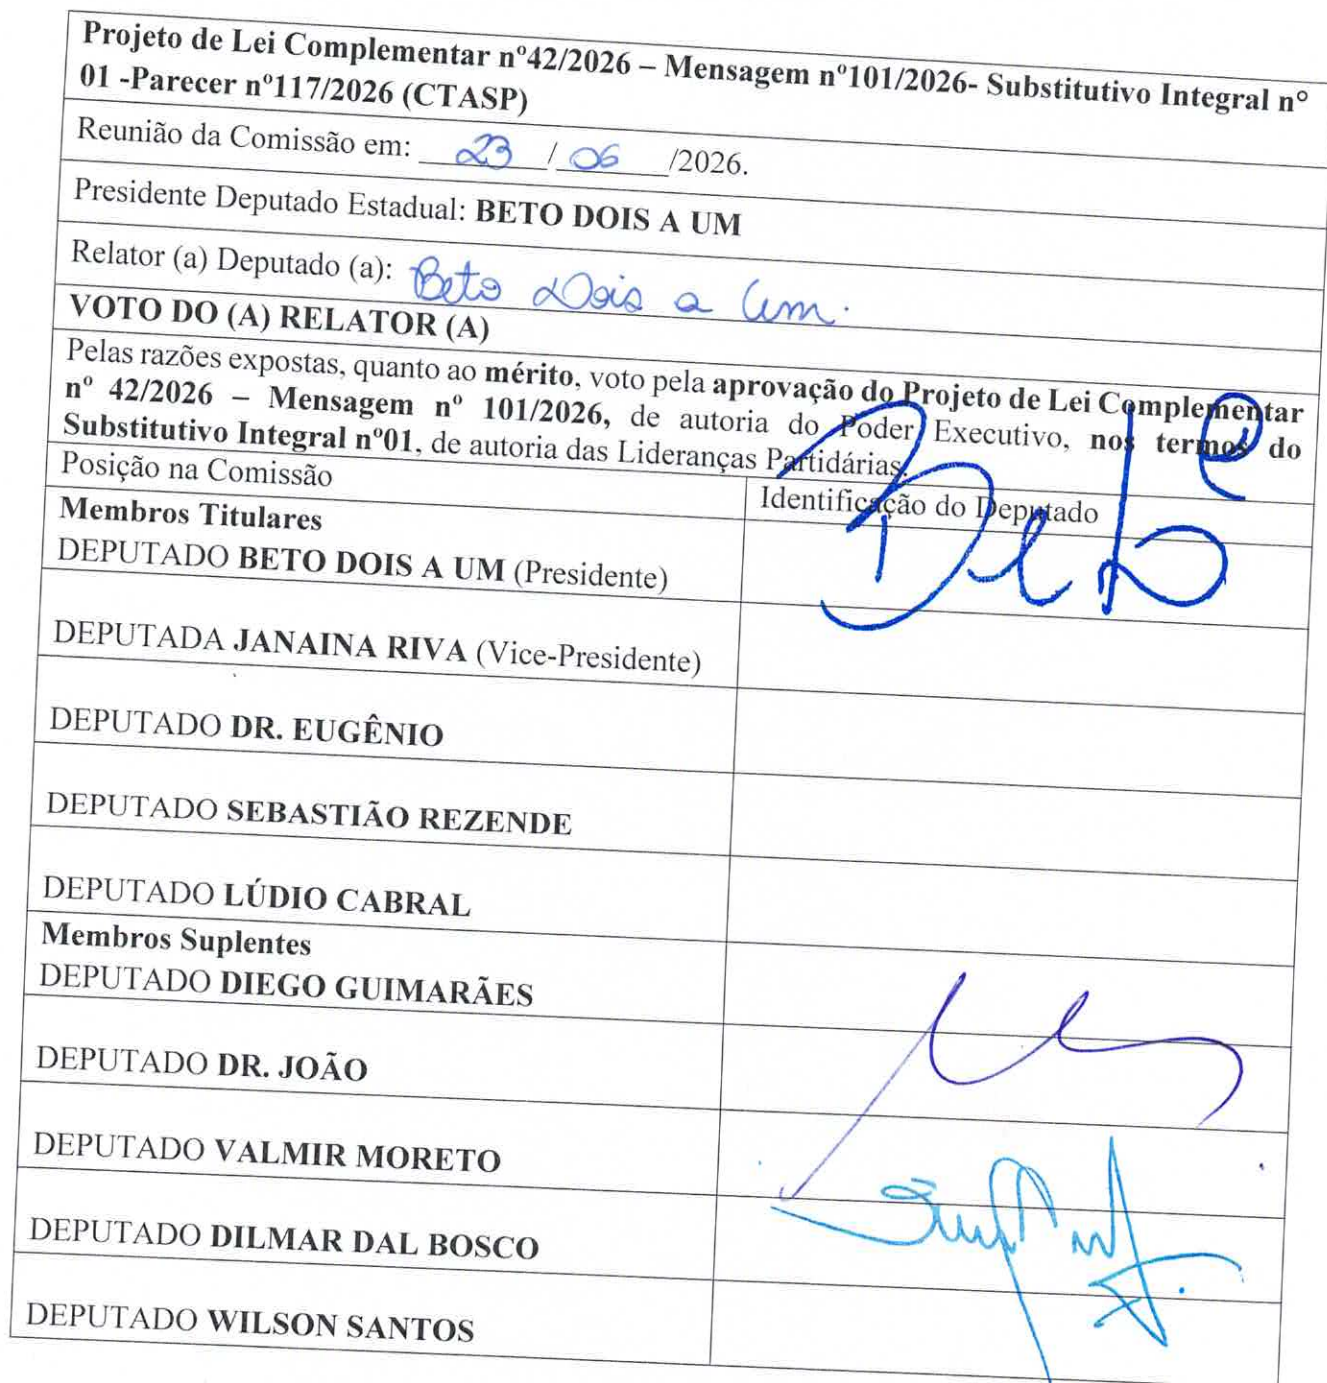 Projeto de Lei Complementar nº42/2026 – Mensagem nº101/2026- Substitutivo Integral nº
01 -Parecer nº117/2026 (CTASP)
Reunião da Comissão em: 23 / 06 /2026.
Presidente Deputado Estadual: BETO DOIS A UM
Relator (a) Deputado (a): Beto Dois a Um.
VOTO DO (A) RELATOR (A)
Pelas razões expostas, quanto ao mérito, voto pela aprovação do Projeto de Lei Complementar
nº 42/2026 – Mensagem nº 101/2026, de autoria do Poder Executivo, nos termos do
Substitutivo Integral nº01, de autoria das Lideranças Partidárias.
Posição na Comissão Identificação do Deputado
Membros Titulares
DEPUTADO BETO DOIS A UM (Presidente) Beto
DEPUTADA JANAINA RIVA (Vice-Presidente)
DEPUTADO DR. EUGÊNIO
DEPUTADO SEBASTIÃO REZENDE
DEPUTADO LÚDIO CABRAL
Membros Suplentes
DEPUTADO DIEGO GUIMARÃES
DEPUTADO DR. JOÃO
DEPUTADO VALMIR MORETO
DEPUTADO DILMAR DAL BOSCO
DEPUTADO WILSON SANTOS